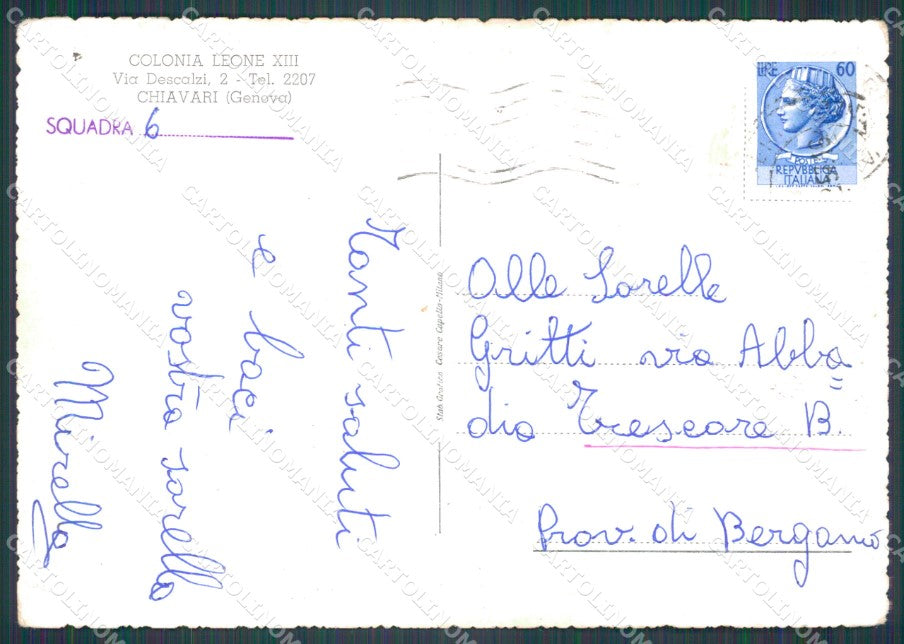 COLONIA LEONE XIII
Via Descalzi, 2 - Tel. 2207
CHIAVARI (Genova)
SQUADRA 6
LIRE 60
POSTE
REPVBBLICA
ITALIANA
Tanti saluti
e baci
vostra sorella
Mirella
Stab. Grafico Cesare Capello - Milano
Alle Sorelle
Gritti via Abba
=
dia Trescore B.
Prov. di Bergamo
CARTOLINOMANIA